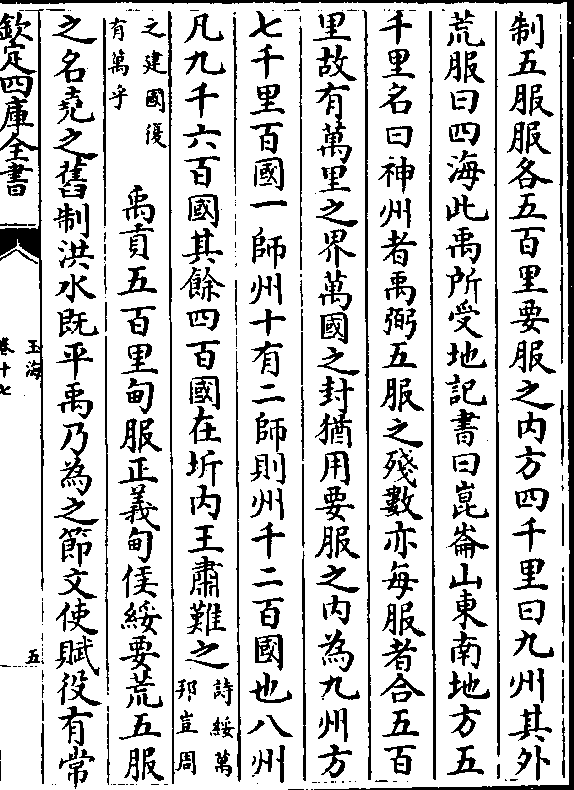 制五服服各五百里要服之内方四千里曰九州其外
荒服曰四海此禹所受地記書曰崑崙山東南地方五
千里名曰神州者禹弼五服之殘數亦每服者合五百
里故有萬里之界萬國之封猶用要服之内為九州方
七千里百國一師州十有二師則州千二百國也八州
凡九千六百國其餘四百國在圻内王肅難之詩綏萬
邦豈周
之建國復
有萬乎
禹貢五百里甸服正義甸侯綏要荒五服
之名堯之舊制洪水既平禹乃為之節文使賦役有常
欽定四庫全書
玉海
卷十七
五